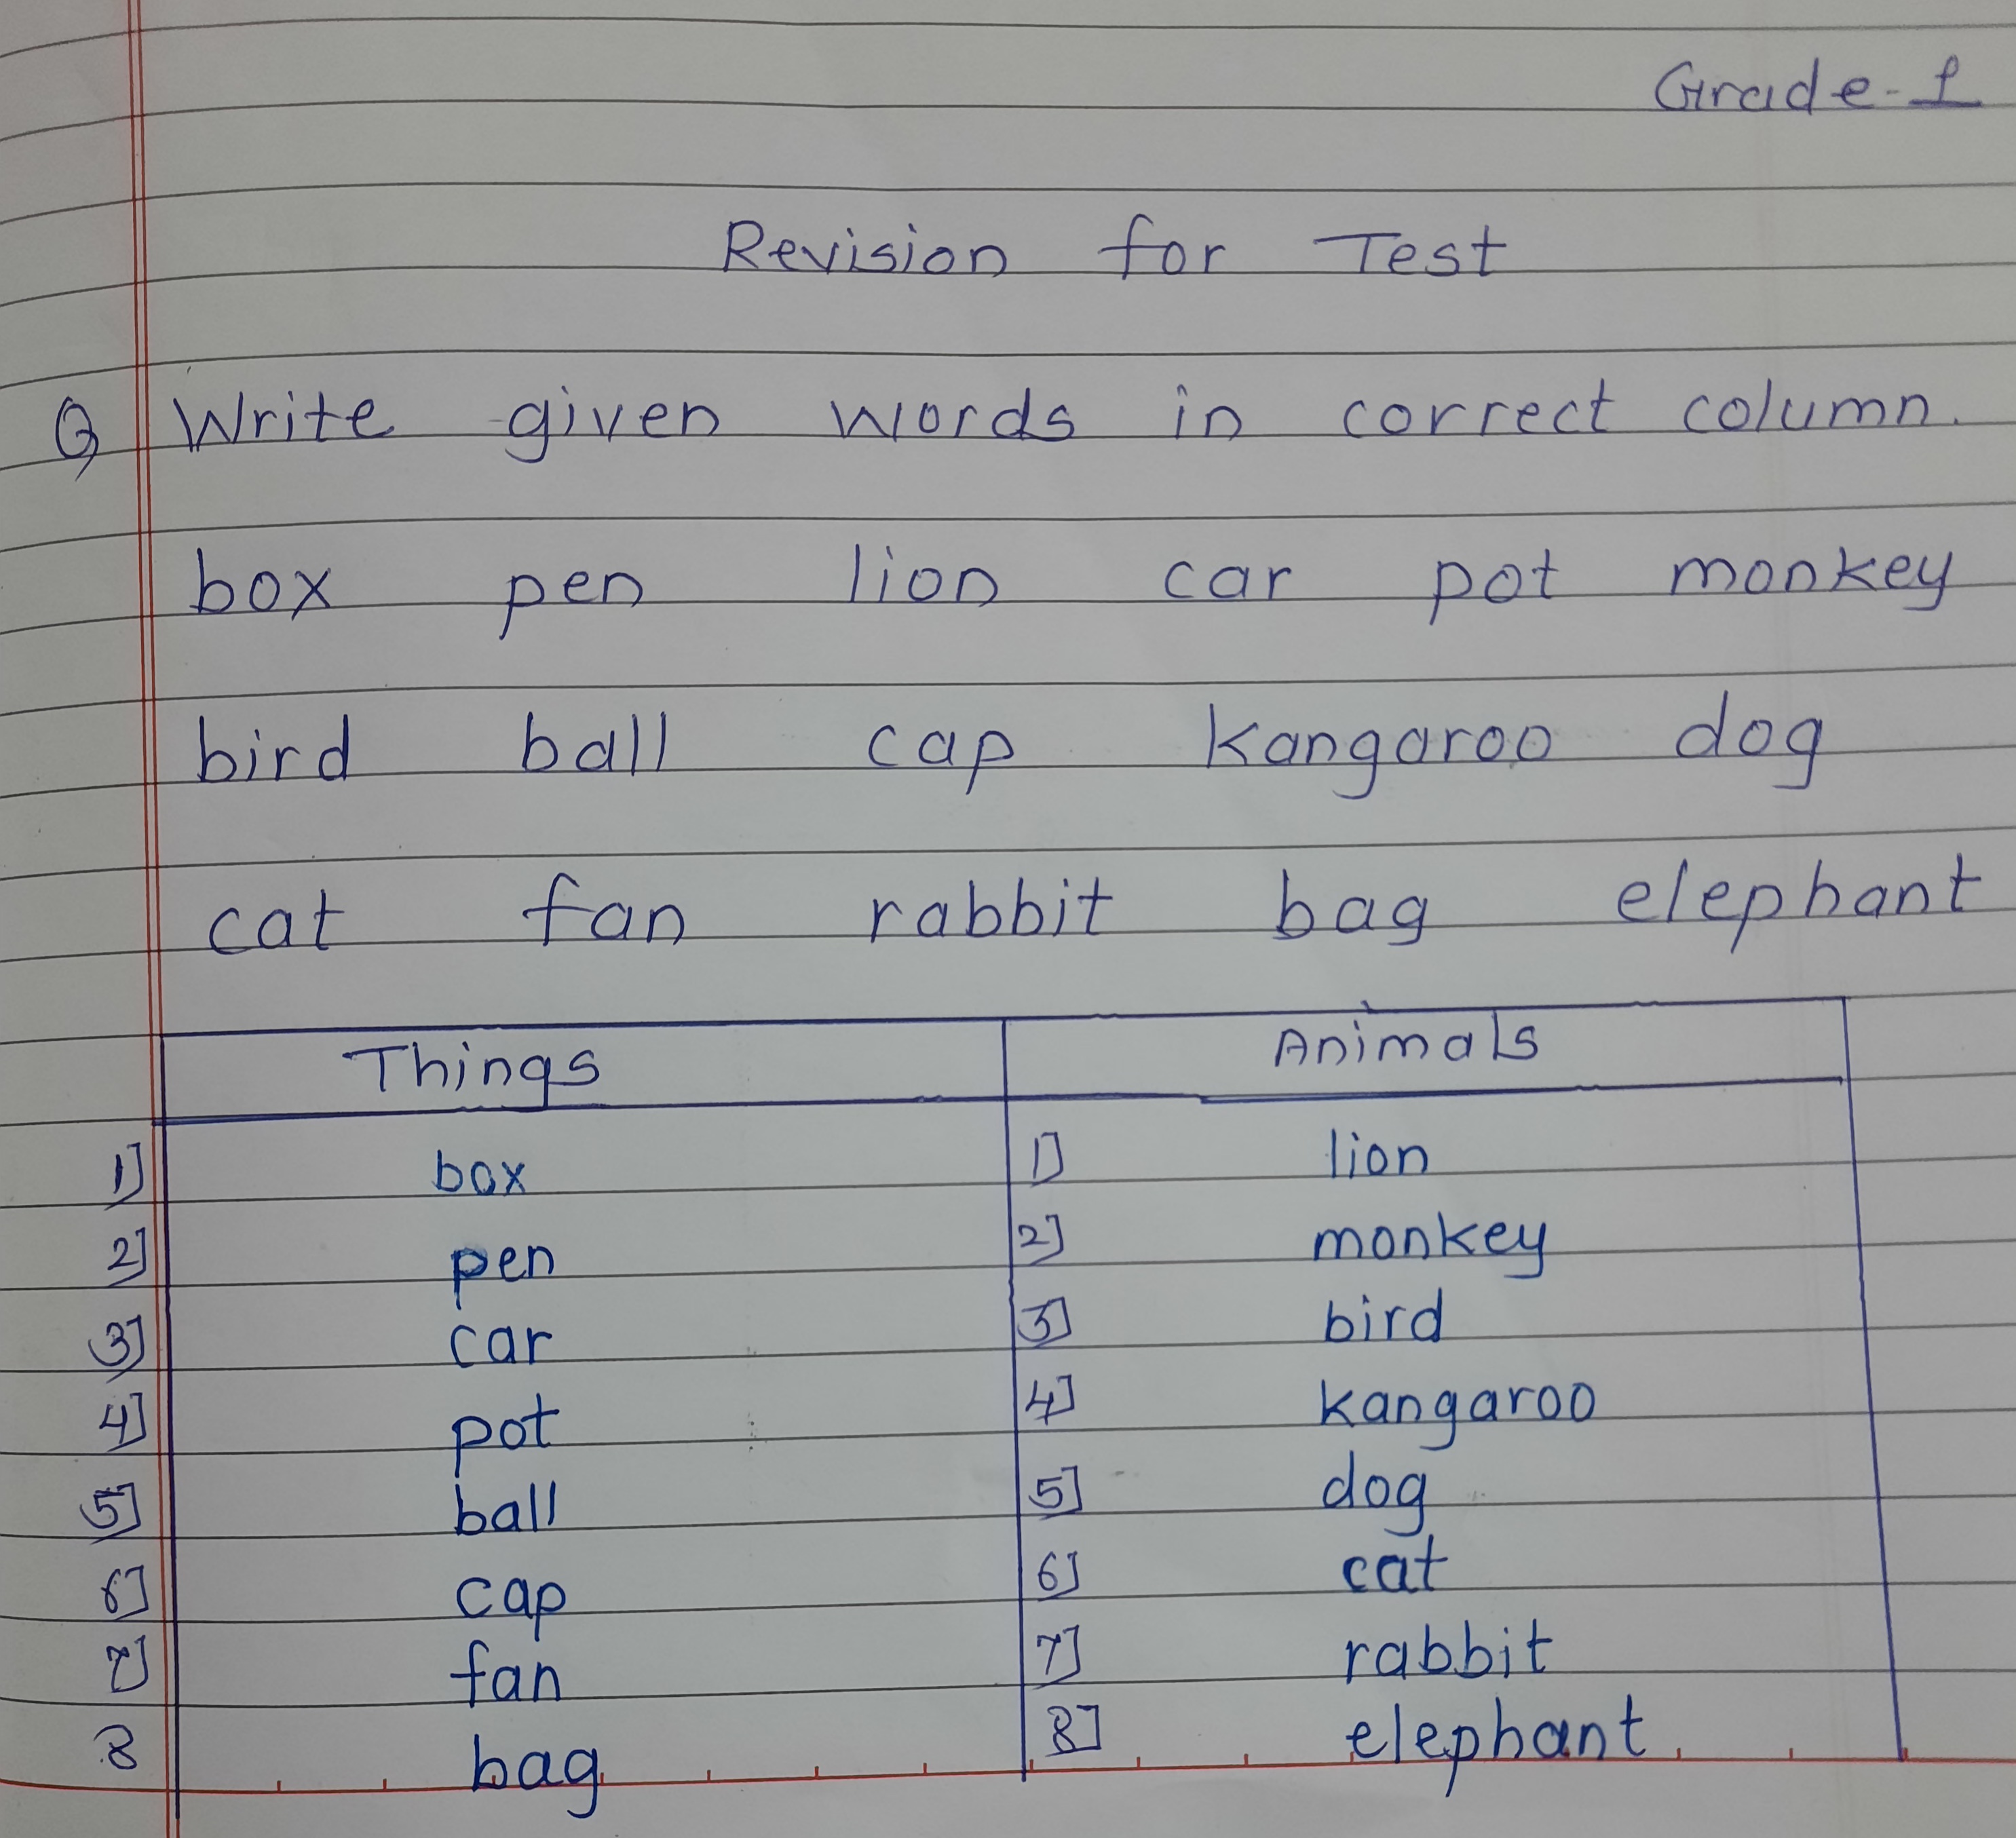 Grade-1
Revision for Test
Q Write given words in correct column.
box pen lion car pot monkey
bird ball cap kangaroo dog
cat fan rabbit bag elephant
Things Animals
1] box 1] lion
2] pen 2] monkey
3] car 3] bird
4] pot 4] kangaroo
5] ball 5] dog
6] cap 6] cat
7] fan 7] rabbit
8 bag 8] elephant